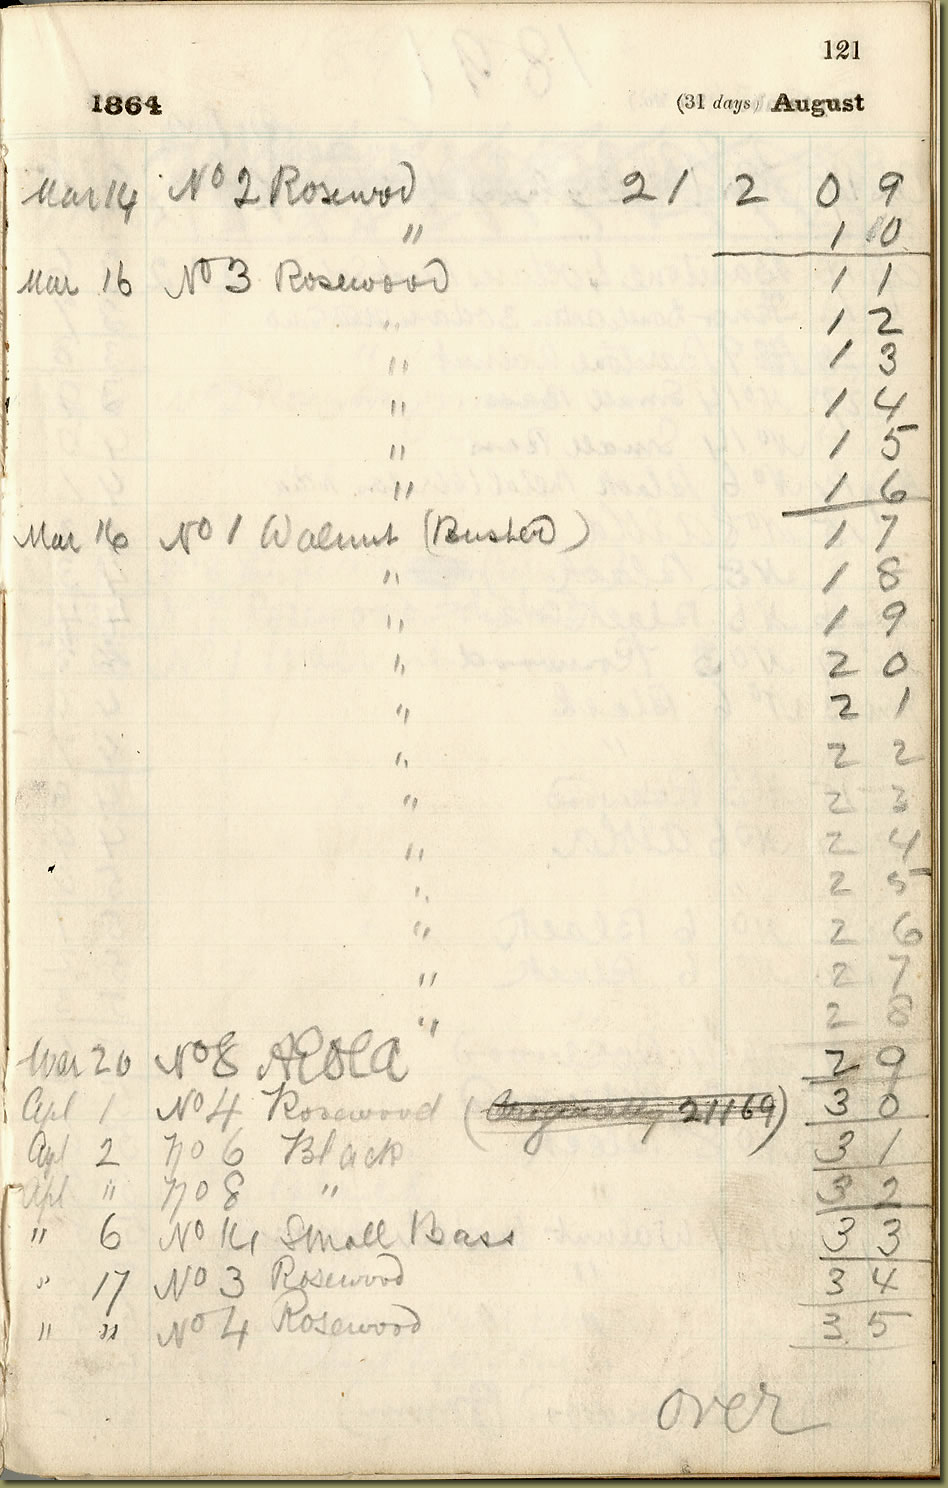 121
1864 (31 days) August
Mar 14 No 2 Rosewod 21 2 0 9
" 1 10
Mar 16 No 3 Rosewood 1 1
" 1 2
" 1 3
" 1 4
" 1 5
" 1 6
Mar 16 No 1 Walnut (Busted) 1 7
" 1 8
" 1 9
" 2 0
" 2 1
" 2 2
" 2 3
" 2 4
" 2 5
" 2 6
" 2 7
" 2 8
Mar 20 No 8 2 9
Apl 1 No 4 Rosewood (Originally 21169) 3 0
Apl 2 No 6 Black 3 1
Apl " No 8 " 3 2
" 6 No 14 Small Bass 3 3
" 17 No 3 Rosewood 3 4
" " No 4 Rosewood 3 5
over